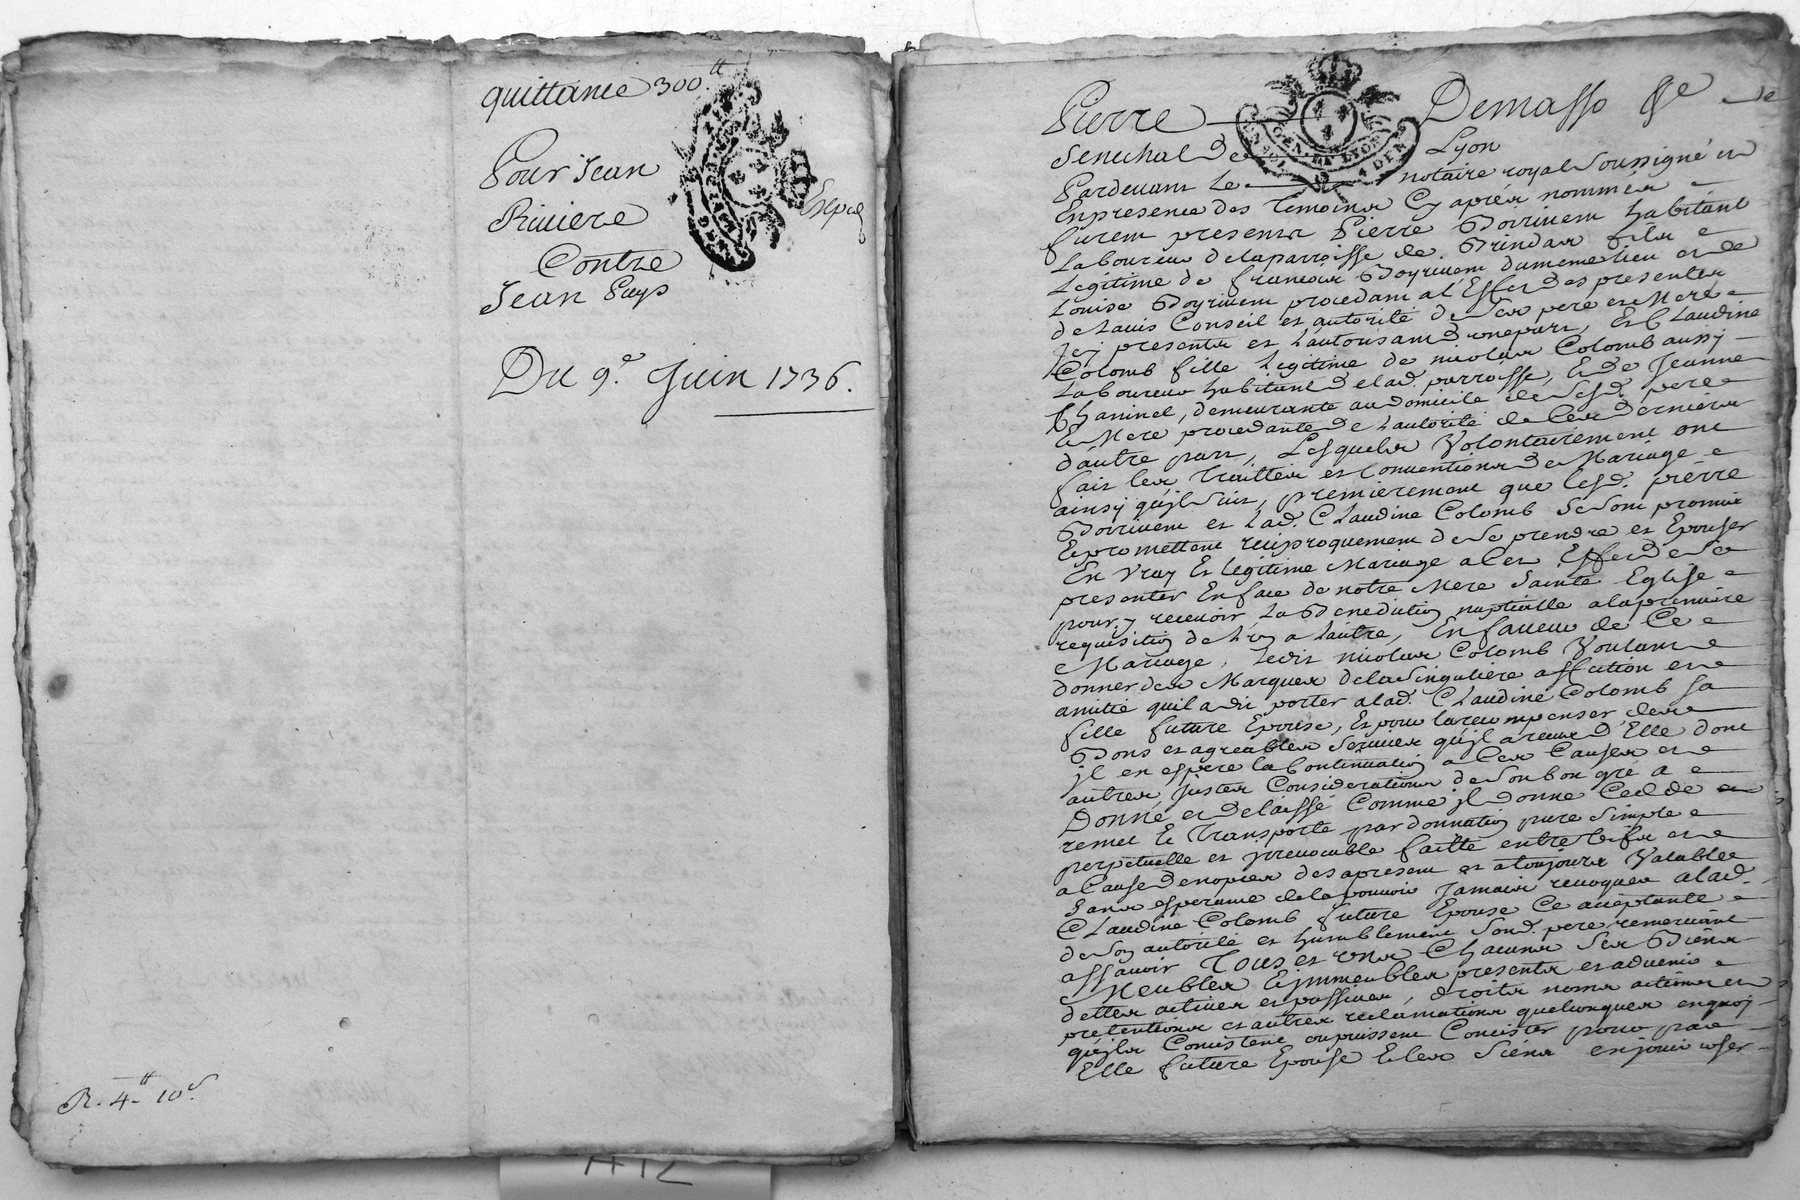 quittance 300.tt
Pour Jean
Riviere
Contre
Jean Puys
Exped
Du 9.e Juin 1736.
R. 4tt 10s
Pierre Demasso &c
Senechal de Lyon
Pardevant Le notaire royal Soussigné en
Enpresence des Temoins Cy aprés nommés
furent presents Pierre Boirivent habitant
Laboureur delaparroisse de Brindas fils
Legitime de francois Boyrivent dumeme lieu et de
Louise Boyrivent procedant al'Effet des presentes
de Lavis Conseil et autorité de Ses pere et Mere
Jcy presents et Lautorisant d'unepart, Et Claudine
Colomb fille Legitime de nicolas Colomb aussy
Laboureur habitant delad. parroisse, Et de Jeanne
Chaninel, demeurante audomicile de Sesd. pere
Et Mere procedante de L'autorité de Ces derniers
d'autre part, Lesquels Volontairement ont
fait les Traittés et Conventions de Mariage
ainsy qu'jl Suit, premierement que lesd. pierre
Boirivent et Lad. Claudine Colomb Se Sont promis
Et promettent reciproquement de Se prendre et Epouser
En Vray Et legitime Mariage a Cet Effet de Se
presenter En face de notre Mere Sainte Eglise
pour y recevoir La Benediction nuptialle alapremiere
requisition de L'un a Lautre, En faveur de Ce
Mariage, ledit nicolas Colomb Voulant
donner des Marques delaSinguliere affection et
amitié quil a dit porter alad. Claudine Colomb Sa
fille future Epouse, Et pour larecompenser des
Bons et agreables Services qu'jl a receus d'Elle dont
jl en espere la Continuation a Ces Causes et
autres justes Considerations de Son bon gré a
Donné et delaissé Comme jl donne Cedde
remet Et Transporte par donnation pure Simple
perpetuelle et jrrevocable faitte entre Vifs et
a Cause denopces desapresent et atoujours Valable
Sans esperance delapouvoir Jamais revoquer alad.
Claudine Colomb future Epouse Ce acceptante
de Son autorité et humblement Sond. pere remerciant
assavoir Tous et uns Chacuns Ses Biens
Meubles Et jmmeubles presents et advenir
dettes actives et passives, droits noms actions et
pretentions et autres reclamations quelconques enquoy
qu'jls Consistent oupuissent Concister pour par
Elle future Epouse Et les Siens en jouir user